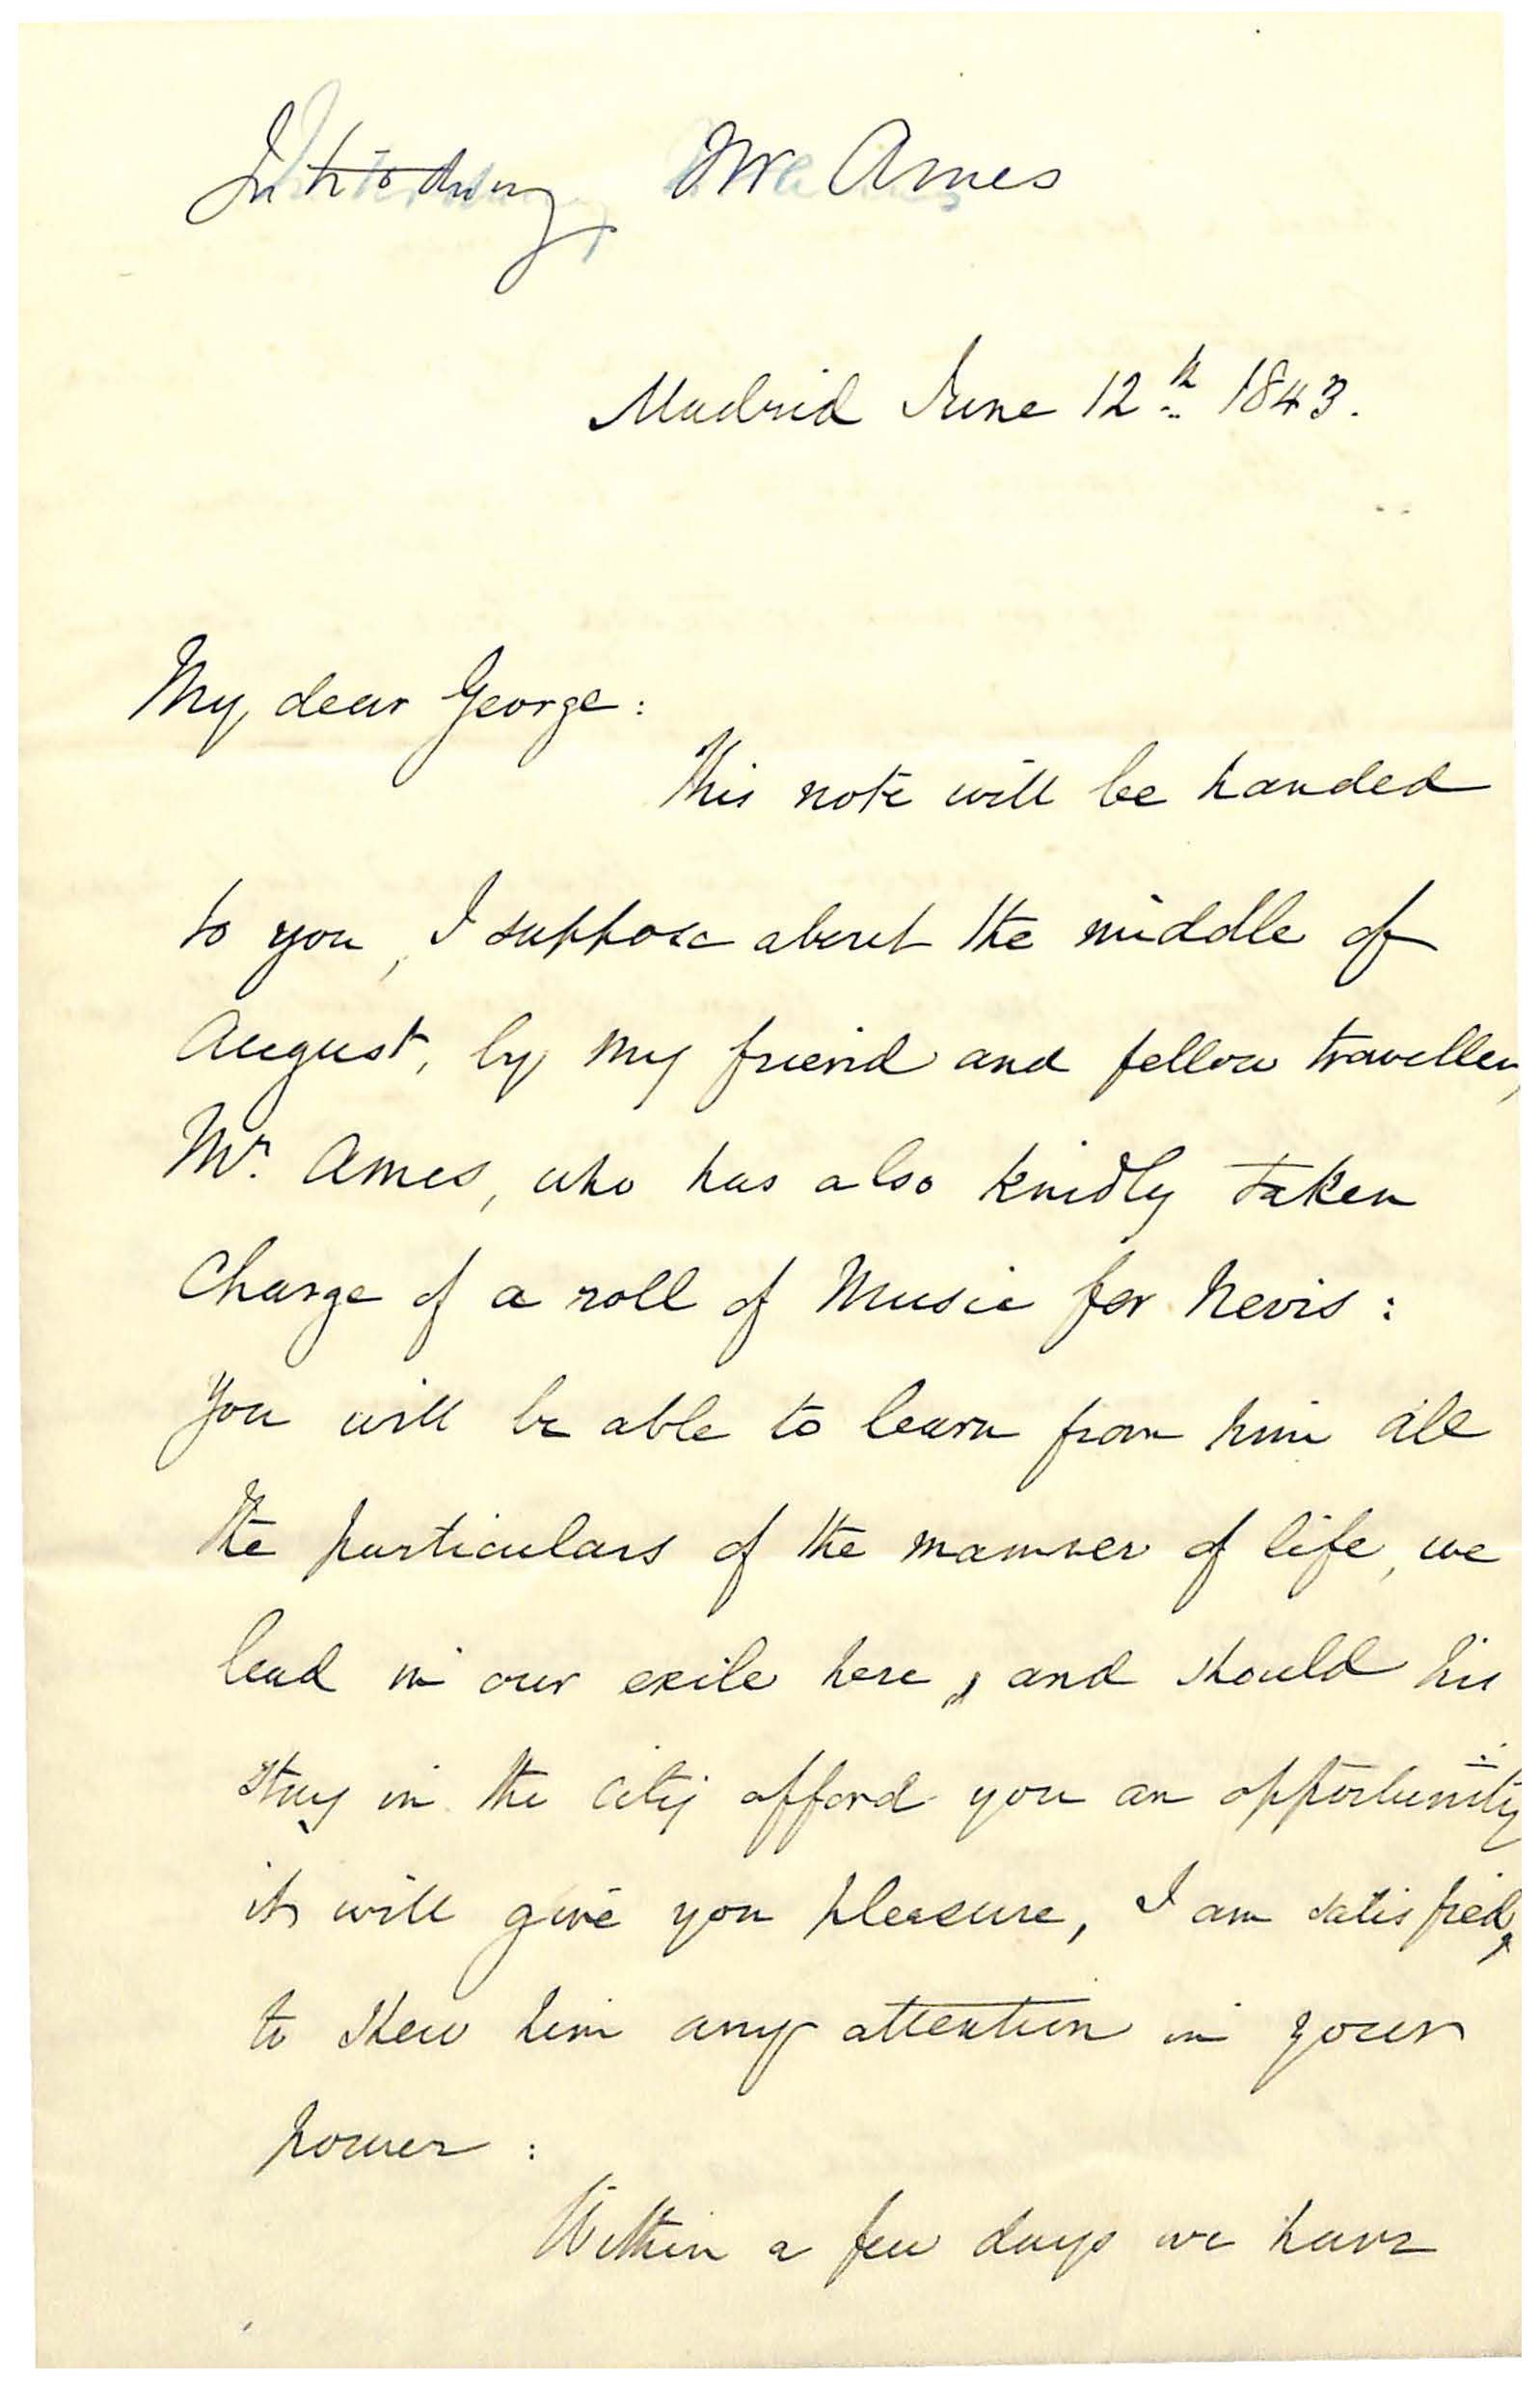 Introducing Mr Ames
Madrid June 12th 1843.
My dear George:
This note will be handed
to you, I suppose about the middle of
August, by my friend and fellow traveller,
Mr. Ames, who has also kindly taken
charge of a roll of Music for Nevis:
You will be able to learn from him all
the particulars of the manner of life, we
lead in our exile here, and should his
stay in the city afford you an opportunity
it will give you pleasure, I am satisfied,
to shew him any attention in your
power:
Within a few days we have